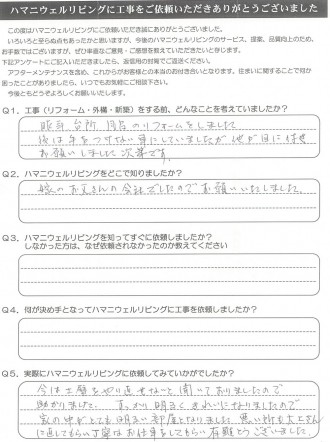 ハマニウェルリビングに工事をご依頼いただきありがとうございました
この度はハマニウェルリビングにご依頼いただき誠にありがとうございました。
いろいろと至らぬ点もあったかと思いますが、今後のハマニウェルリビングのサービス、提案、品質向上のため、
お手数ではございますが、ぜひ率直なご意見・ご感想を教えていただきたいと存じます。
下記アンケートにご記入いただきましたら、返信用の封筒でご返送ください。
アフターメンテナンスを含め、これからがお客様との本当のお付き合いとなります。住まいに関することで何か
困ったことがありましたら、いつでもお気軽にご相談下さい。
今後ともどうぞよろしくお願いいたします。
Q1. 工事（リフォーム・外構・新築）をする前、どんなことを考えていましたか？
台所 のリフォームをしました
後は手をつけない事にしていましたが他が目に付き
お願いしました次第です。
Q2. ハマニウェルリビングをどこで知りましたか？
お父さんの会社でしたのでお願いいたしました。
Q3. ハマニウェルリビングを知ってすぐに依頼しましたか？
しなかった方は、なぜ依頼されなかったのか教えてください
Q4. 何が決め手となってハマニウェルリビングに工事を依頼しましたか？
Q5. 実際にハマニウェルリビングに依頼してみていかがでしたか？
今は をやり直せないと聞いておりましたので
助かりました、すっかり明るくきれいになりましたので
家の中がとても明るい部屋となりました 悪い所も大工さん
に直してもらい丁寧なお仕事をしてもらい有難うございました